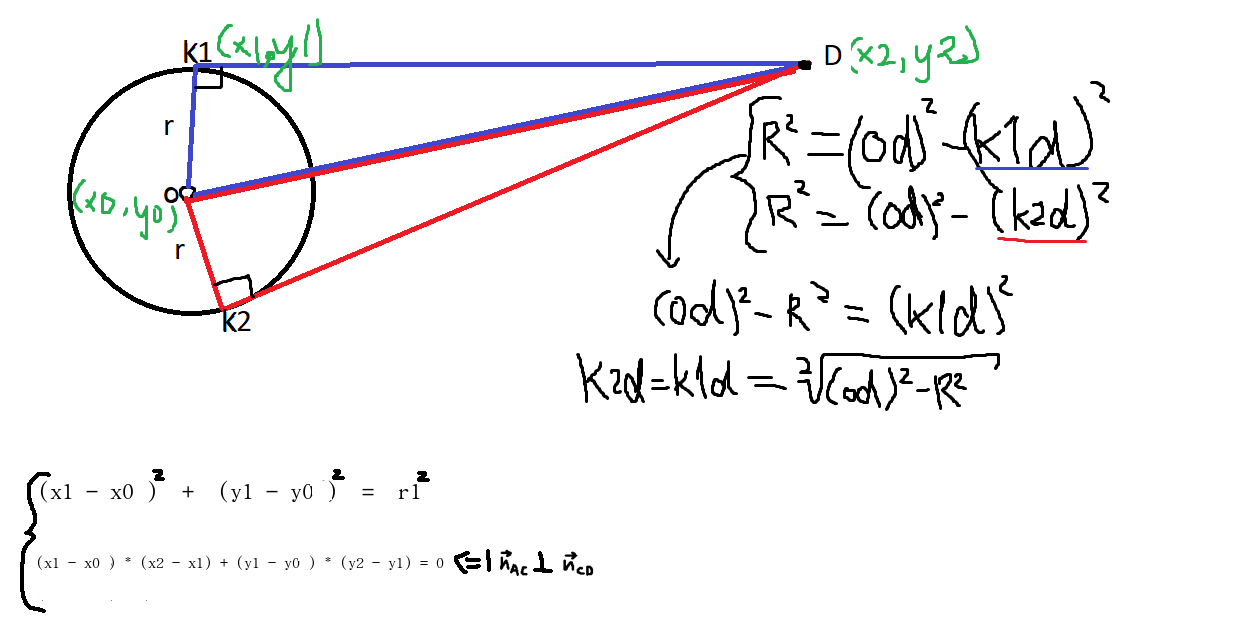 K1 (x1,y1)
D (x2,y2)
r
O
(x0,y0)
r
K2
R² = (od)² - (k1d)²
R² = (od)² - (k2d)²
(od)² - R² = (k1d)²
K2d = k1d = ²√(od)² - R²
(x1 - x0 )² + (y1 - y0 )² = r1²
(x1 - x0 ) * (x2 - x1) + (y1 - y0 ) * (y2 - y1) = 0 <=| n⃗AC ⊥ n⃗CD